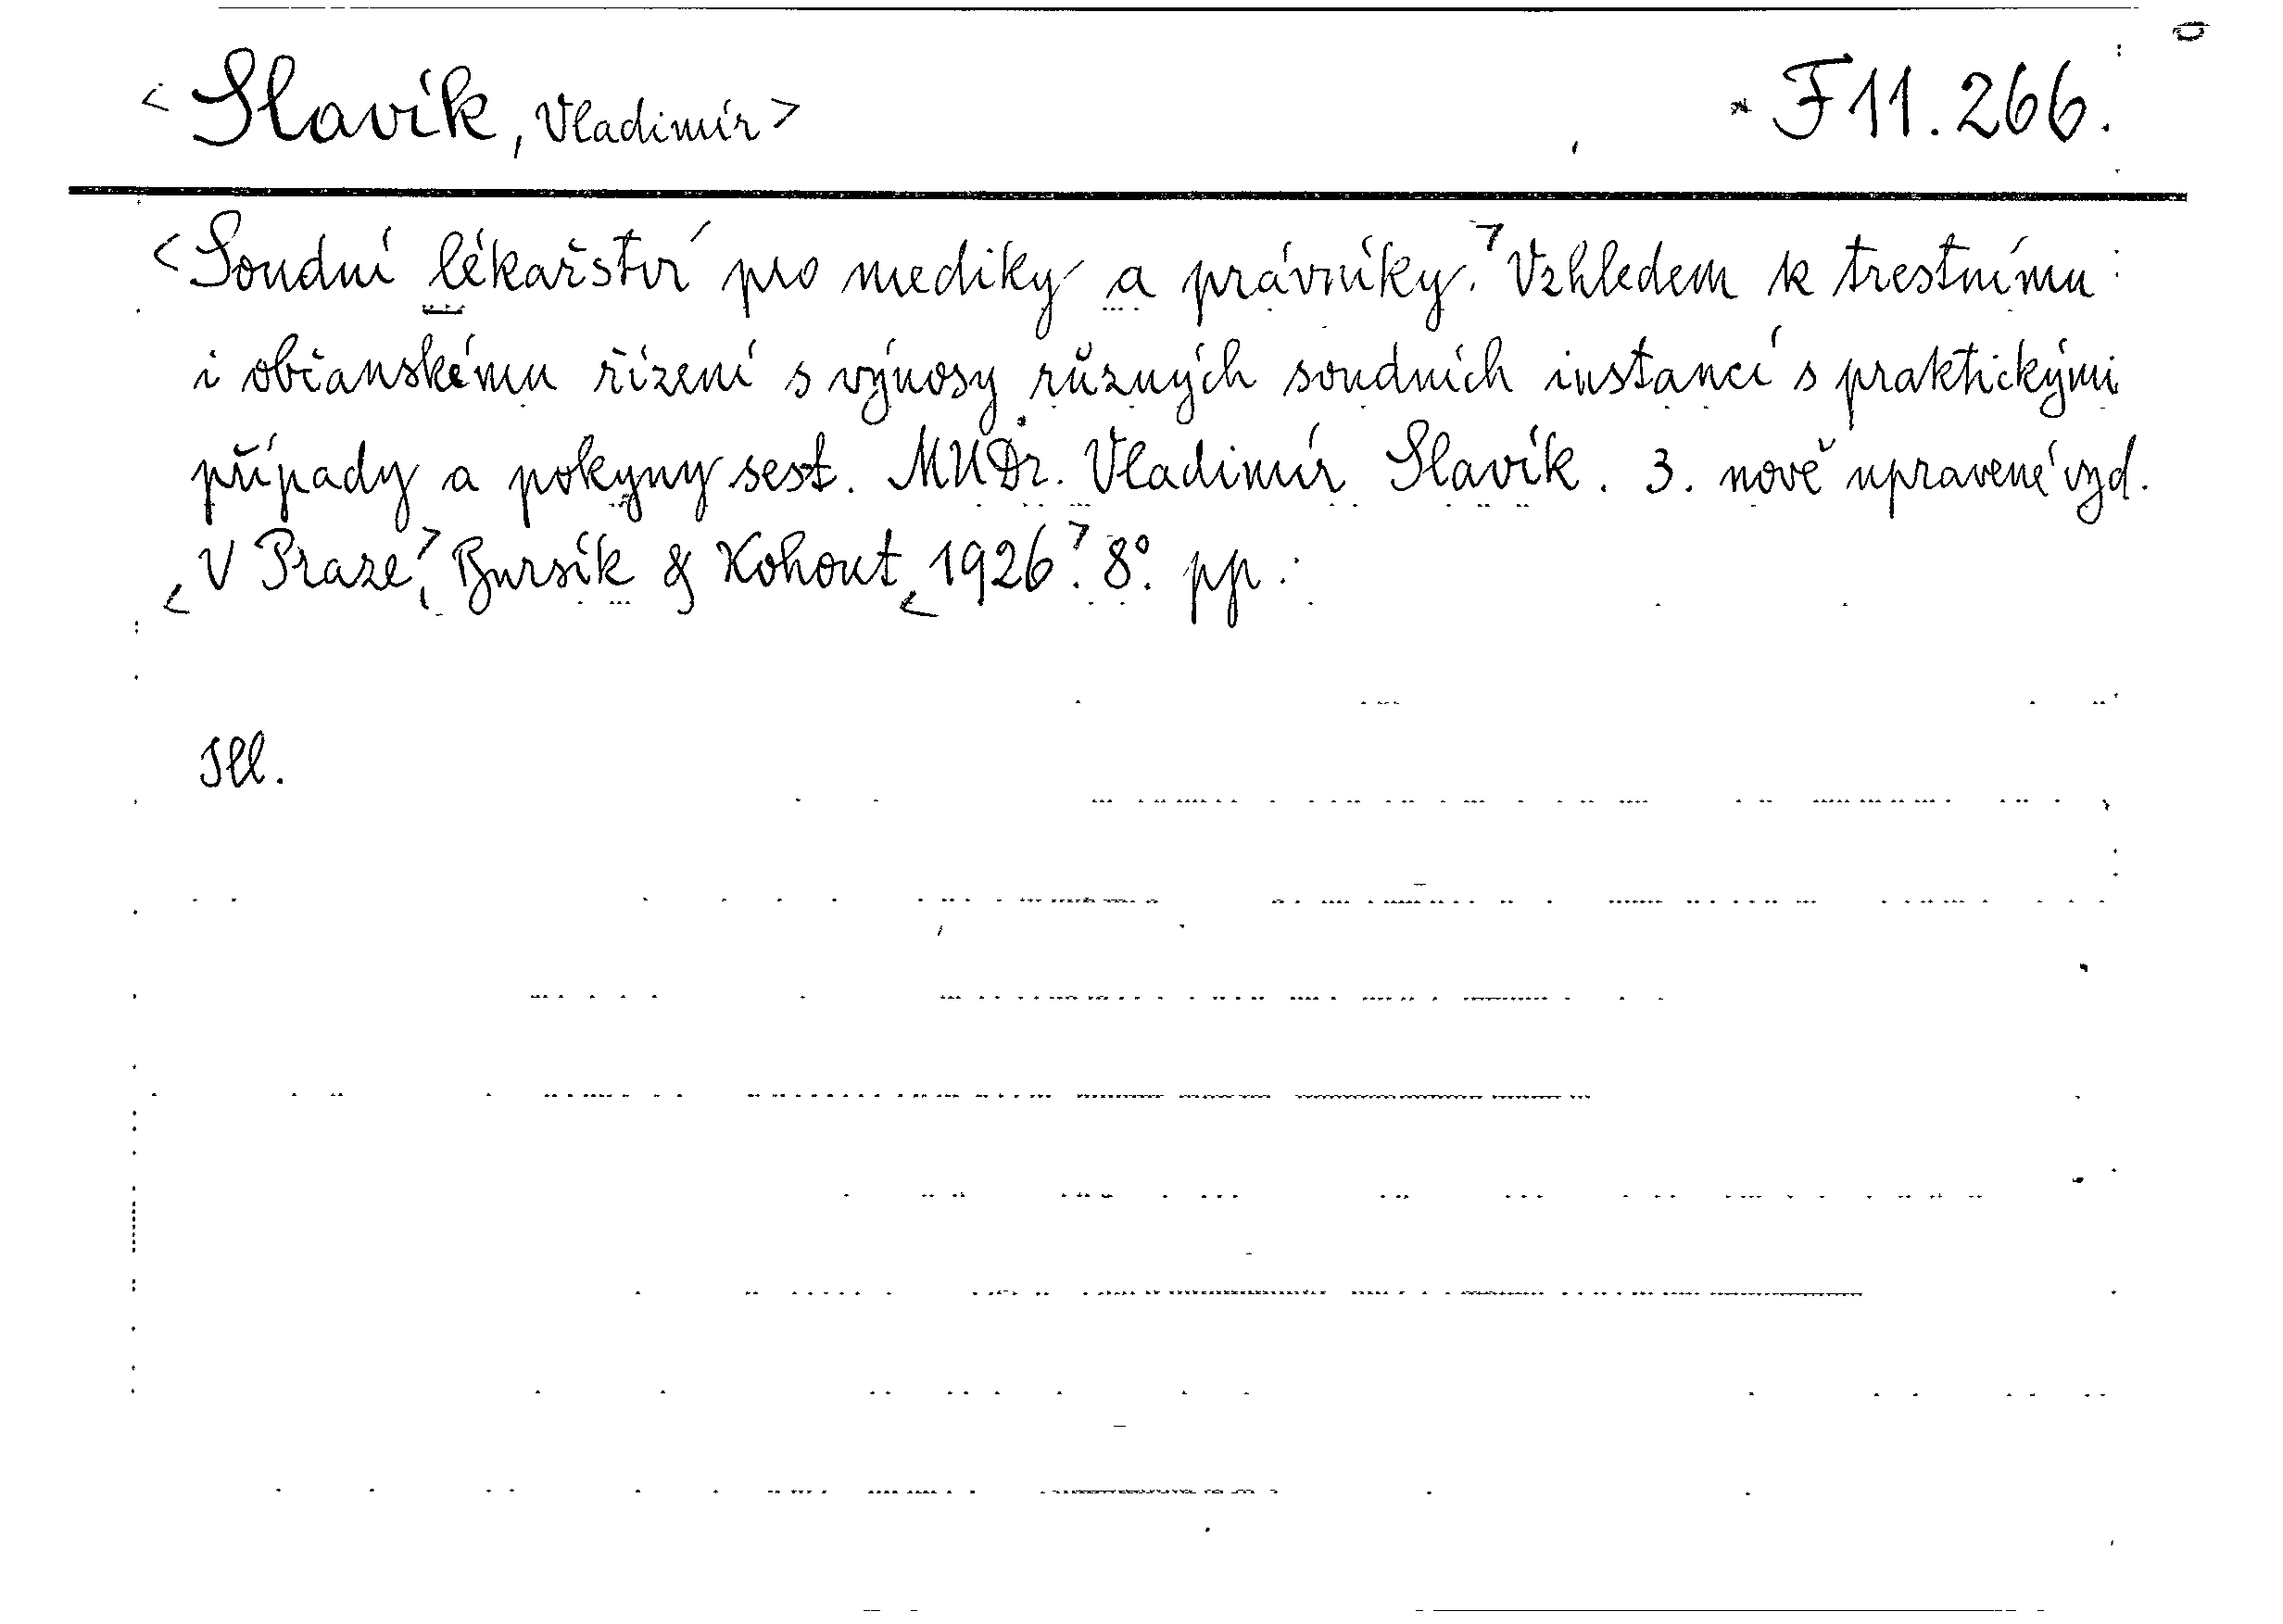 <Slavík, Vladimír> * F 11.266.
<Soudní lékařství pro mediky a právníky.> Vzhledem k trestnímu
i občanskému řízení s výnosy různých soudních instancí s praktickými
případy a pokyny sest. MUDr. Vladimír Slavík. 3. nově upravené vyd.
<V Praze>, Bursík & Kohout, <1926>. 8°. pp.
Ill.